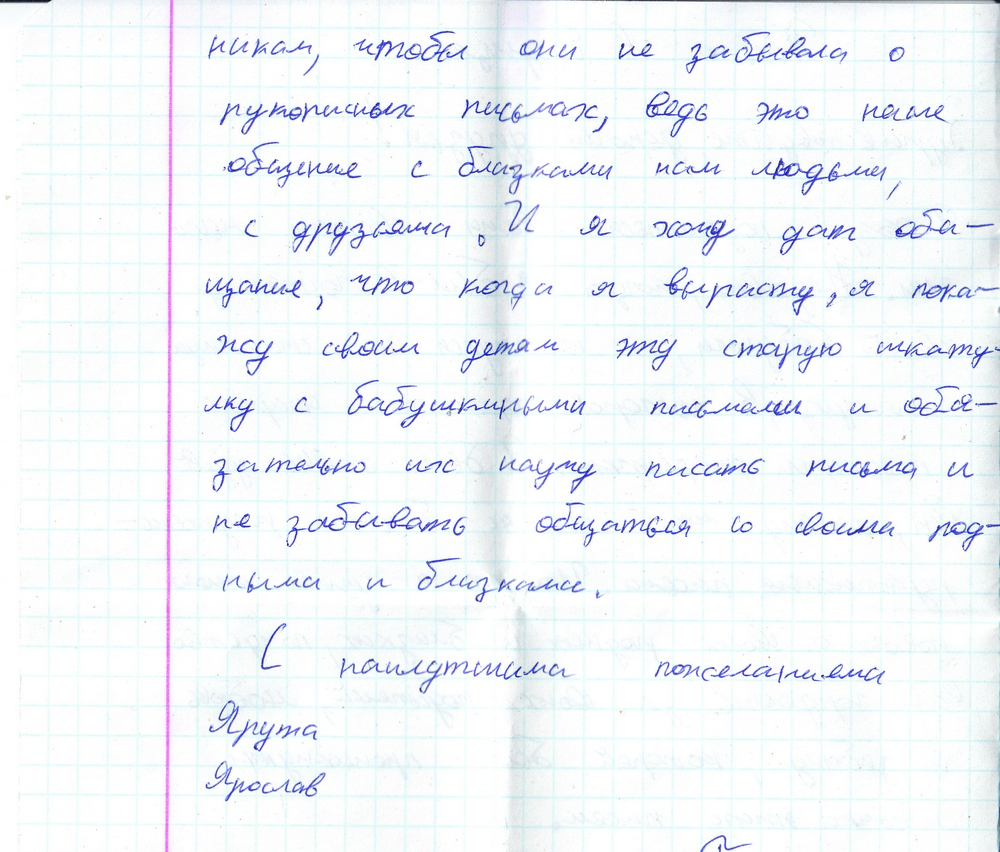 никам, чтобы они не забывали о
рукописных письмах, ведь это наше
общение с близкими нам людьми,
с друзьями. И я хочу дат оби-
щание, что когда я вырасту, я пока-
жу своим детям эту старую шкату-
лку с бабушкиными письмами и обя-
зательно их научу писать письма и
не забывать общаться со своими род-
ными и близкими.
С наилутшими пожеланиями
Ярута
Ярослав